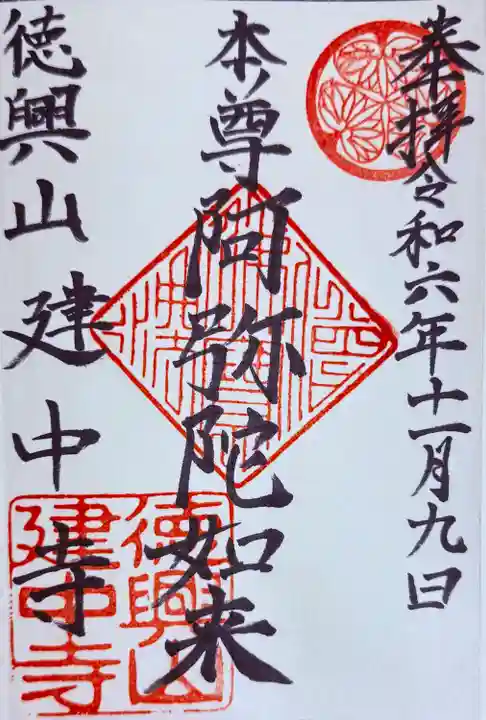 奉拝令和六年十一月九日
本尊阿弥陀如来
徳興山建中寺
德興山
建中寺